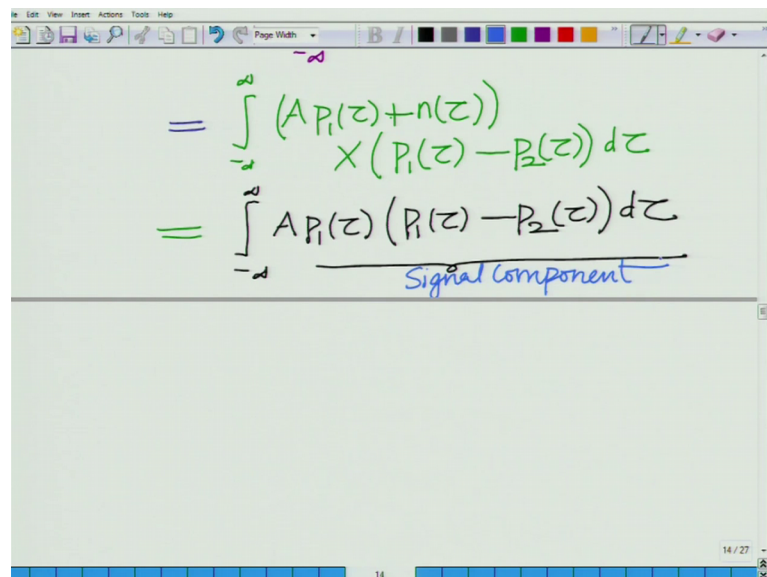 Edit View Insert Actions Tools Help
Page Width B I
-∞
= ∫ from -∞ to ∞ (A P₁(τ) + n(τ))
× (P₁(τ) - P₂(τ)) dτ
= ∫ from -∞ to ∞ A P₁(τ) (P₁(τ) - P₂(τ)) dτ
Signal Component
14 / 27
14